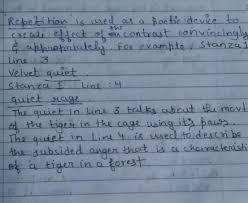 Repetition is used as a poetic device to
create effect of the contrast convincingly
& appropriately. For example, Stanza I
Line : 3
Velvet quiet
Stanza I Line : 4
quiet rage
The quiet in Line 3 talks about the movt
of the tiger in the cage using it's paws.
The quiet in Line 4 is used to describe
the subsided anger that is a characteristic
of a tiger in a forest